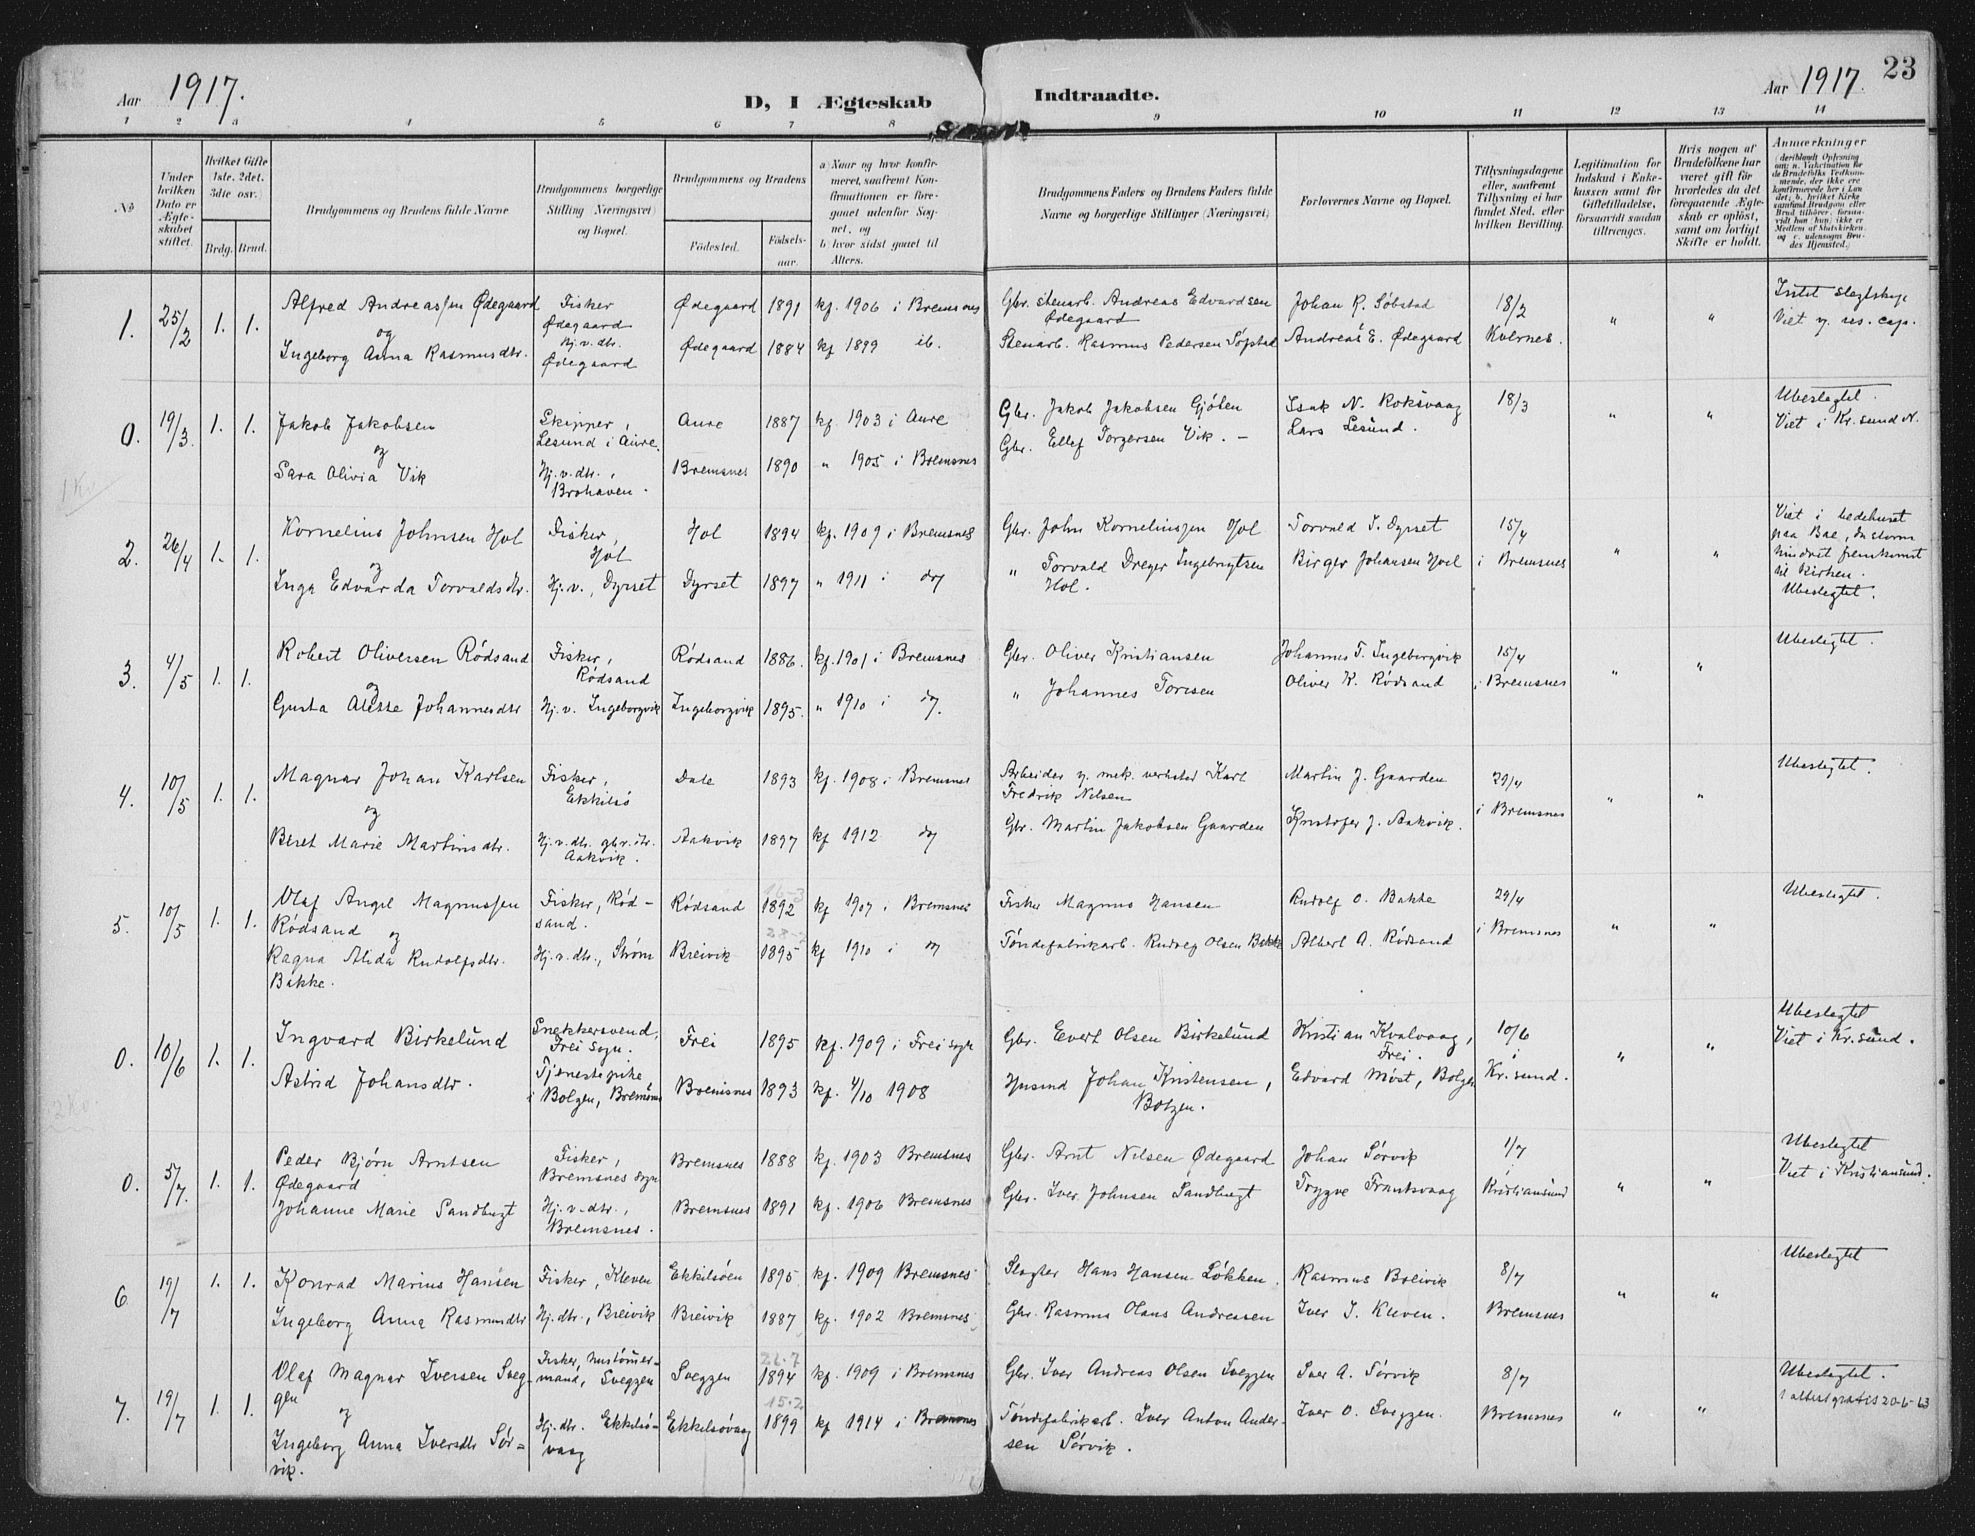 Aar 1917.
D, I Ægteskab Indtraadte.
Aar 1917.
23
1 2 3 4 5 6 7 8 9 10 11 12 13 14
No
Under hvilken Dato er Ægteskabet stiftet.
Hvilket Gifte 1ste. 2det. 3dte osv.
Brdg. Brud.
Brudgommens og Brudens fulde Navne
Brudgommens borgerlige Stilling (Næringsvei) og Bopæl.
Brudgommens og Brudens
Fødested.
Fødsels-aar.
a) Naar og hvor konfirmeret, saafremt Konfirmationen er foregaaet udenfor Sognet, og
b) hvor sidst gaaet til Alters.
Brudgommens Faders og Brudens Faders fulde Navne og borgerlige Stillinger (Næringsvei)
Forlovernes Navne og Bopæl.
Tillysningsdagene eller, saafremt Tillysning ei har fundet Sted, efter hvilken Bevilling.
Legitimation for Indskud i Enkekassen samt for Giftetilladelse, forsaavidt saadan tiltrænges.
Hvis nogen af Brudefolkene har været gift før hvorledes da det foregaaende Ægteskab er opløst, samt om lovligt Skifte er holdt.
Anmærkninger
1. 25/2 1. 1. Alfred Andreassen Ødegaard
og
Ingeborg Anna Rasmusdtr.
Fisker
Ødegaard
Hj.v.dtr.
Ødegaard
Ødegaard 1891 kf. 1906 i Bremsnes
Ødegaard 1884 kf 1899 ib.
Gbr. stenarb. Andreas Edvardsen
Ødegaard
Stenarb. Rasmus Pedersen Søpstad
Johan R. Søbstad
Andreas E. Ødegaard
18/2
Kvernes.
" "
Intet slegtskap
Viet v. res. cap.
0. 19/3 1. 1. Jakob Jakobsen
og
Sara Olivia Vik
Skipper,
Lesund i Aure.
Hj.v.dtr.,
Brohaven.
Aure 1887 kf. 1903 i Aure
Bremsnes 1890 " 1905 i Bremsnes
Gbr. Jakob Jakobsen Gjølen
Gbr. Ellef Torgersen Vik. –
Isak N. Roksvaag
Lars Lesund.
18/3
" "
Ubeslegtet.
Viet i Kr.sund N.
1 Kv.
2. 26/4 1. 1. Kornelius Johnsen Hol
og
Inga Edvarda Torvaldsdtr.
Fisker,
Hol
Hj.v., Dyrset
Hol 1894 kf. 1909 i Bremsnes
Dyrset 1897 " 1911 i do
Gbr. John Korneliussen Hol
" Torvald Dreyer Ingebrigtsen
Hol.
Torvald I. Dyrset
Birger Johansen Hoel
15/4
i Bremsnes
" "
Viet i bedehuset
paa Bae, da storm
hindret fremkomst
til kirken.
Ubeslegtet.
3. 4/5 1. 1. Robert Oliversen Rødsand
og
Gusta Alette Johannesdtr
Fisker,
Rødsand
Hj.v. Ingeborgvik
Rødsand 1886. kf. 1901 i Bremsnes
Ingeborgvik 1895. " 1910 i do.
Gbr. Oliver Kristiansen
" Johannes Toresen
Johannes T. Ingeborgvik
Oliver K. Rødsand
15/4
i Bremsnes
" "
Ubeslegtet.
4. 10/5 1. 1. Magnar Johan Karlsen
og
Beret Marie Martinsdtr.
Fisker,
Ekkilsö
Hj.v.dtr. gbr.dtr.
Aakvik.
Dale 1893 kf. 1908 i Bremsnes
Aakvik 1897 kf 1912 do
Arbeider v. mek. verksted Karl
Fredrik Nilsen
Gbr. Martin Jakobsen Gaarden
Martin J. Gaarden
Kristofer J. Aakvik.
29/4
i Bremsnes
" "
Ubeslegtet.
5. 10/5 1. 1. Olaf Angel Magnussen
Rødsand
og
Ragna Alida Rudolfsdtr.
Bakke.
Fisker, Rød-
sand.
Hj.v.dtr., Strøm
16-3
Rødsand 1892 kf 1907 i Bremsnes
Breivik 1895 kf 1910 i do
Fisker Magnus Hansen
Tøndefabrikarb. Rudolf Olsen Bakke
Rudolf O. Bakke
Albert A. Rødsand
29/4
i Bremsnes
" "
Ubeslegtet.
0. 10/6 1. 1. Ingvard Birkelund
Astrid Johansdtr.
Snekkersvend,
Frei sogn.
Tjenestepike
i Bolgen, Bremsnes
Frei 1895 kf. 1909 i Frei sogn
Bremsnes 1893 kf. 4/10 1908
Gbr. Evert Olsen Birkelund
Husmd Johan Kristensen,
Bolgen.
Kristian Kvalvaag,
Frei.
Edvard Møst, Bolgen
10/6
i
Kr.sund.
" "
Ubeslegtet
Viet i Kr.sund.
2 Kv.
0. 5/7. 1. 1. Peder Bjørn Arntsen
Ødegaard
Johanne Marie Sandbugt
Fisker,
Bremsnes sogn
Hj.v.dtr.,
Bremsnes.
Bremsnes 1888 kf. 1903 Bremsnes
Bremsnes 1891 kf. 1906 Bremsnes
Gbr. Arnt Nilsen Ødegaard
Gbr. Iver Johnsen Sandbugt
Johan Sørvik
Trygve Frantsvaag
1/7
Kristiansund
" "
Ubeslegtet
Viet i Kristiansund.
6. 19/7 1. 1. Konrad Marius Hansen
Ingeborg Anna Rasmusdtr
Fisker, Kleven
Hj.dtr., Breivik
Ekkilsöen 1895 kf. 1909 Bremsnes.
Breivik 1887 kf. 1902 Bremsnes.
Slagter Hans Hansen Løkken.
Gbr. Rasmus Olaus Andreasen
Rasmus Breivik
Iver I. Kleven.
8/7
Bremsnes
" "
Ubeslegtet
7. 19/7 1. 1. Olaf Magnar Iversen Sveg-
gen
og
Ingeborg Anna Iversdtr Sør-
vik.
Fisker, hustømer-
mand, Sveggen
Hj.dtr. Ekkilsö-
vaag
Sveggen 1894 kf. 1909 i Bremsnes
15-2
Ekkilsövaag 1899 kf 1914 i Bremsnes
Gbr. Iver Andreas Olsen Sveggen
Tøndefabrikarb. Iver Anton Ander-
sen Sørvik.
Iver A. Sørvik
Iver O. Sveggen.
8/7
Bremsnes
" "
Ubeslegtet.
1 attest gratis 20-6-63